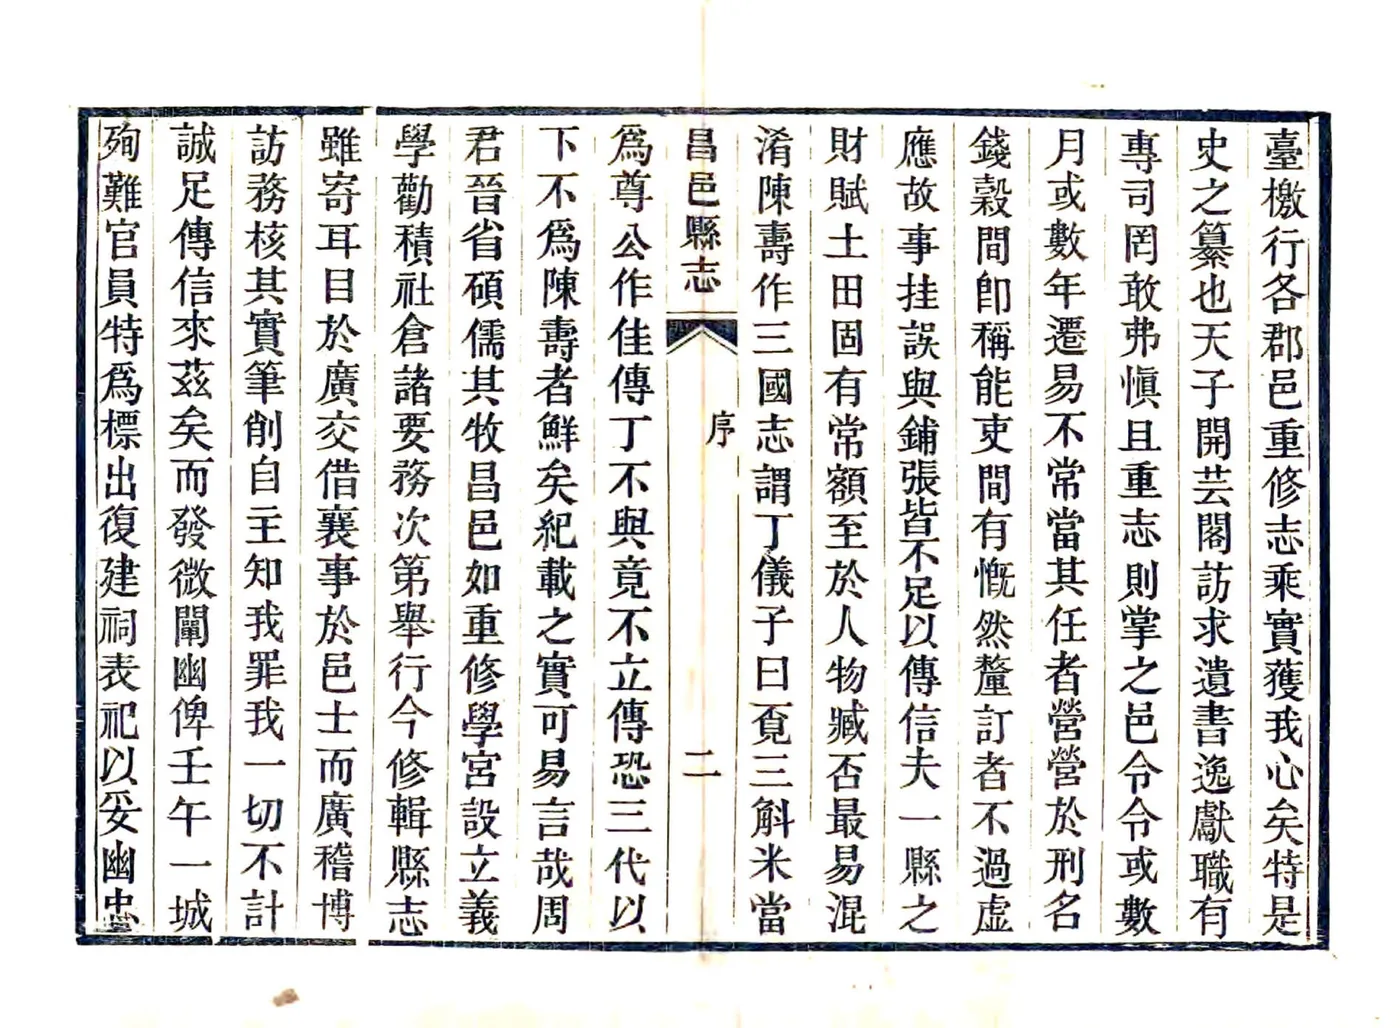 臺檄行各郡邑重修志乘實獲我心矣特是
史之纂也天子開芸閣訪求遺書逸獻職有
專司罔敢弗慎且重志則掌之邑令令或數
月或數年遷易不常當其任者營營於刑名
錢穀間卽稱能吏間有慨然釐訂者不過虛
應故事挂誤與鋪張皆不足以傳信夫一縣之
財賦土田固有常額至於人物臧否最易混
淆陳壽作三國志謂丁儀子曰覔三斛米當
昌邑縣志
序
二
爲尊公作佳傳丁不與竟不立傳恐三代以
下不爲陳壽者鮮矣紀載之實可易言哉周
君晉省碩儒其牧昌邑如重修學宮設立義
學勸積社倉諸要務次第舉行今修輯縣志
雖寄耳目於廣交借襄事於邑士而廣稽博
訪務核其實筆削自主知我罪我一切不計
誠足傳信來茲矣而發微闡幽俾壬午一城
殉難官員特爲標出復建祠表祀以妥幽忠